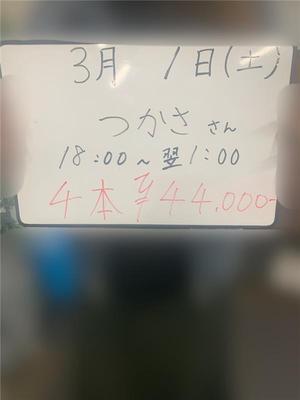 3月 1日(土)
つかさ さん
18:00~翌1:00
4本 ¥44,000-